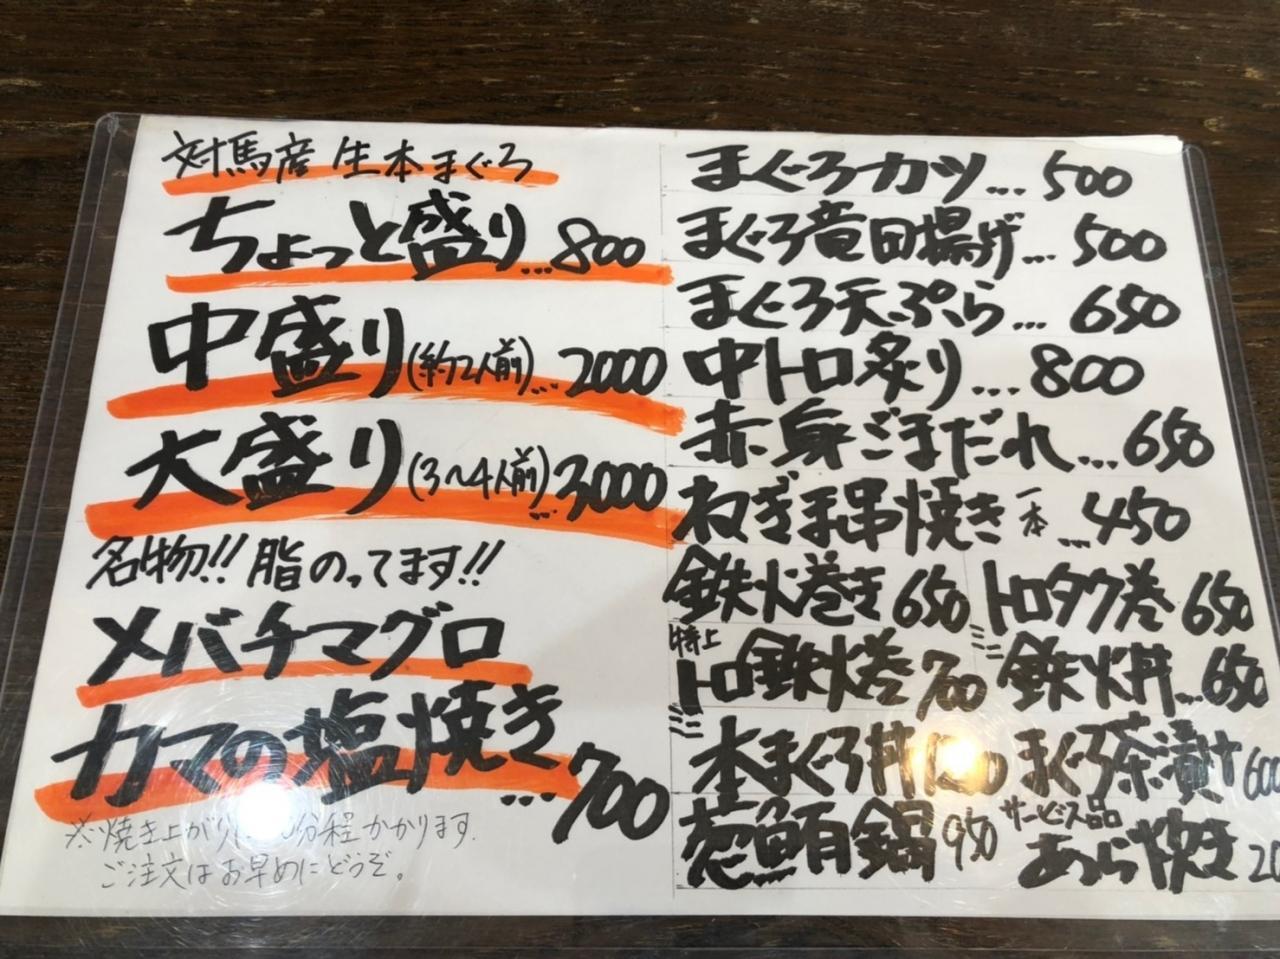 対馬産 生本まぐろ
ちょっと盛り...800
中盛り(約2人前)...2000
大盛り(3〜4人前)...3000
名物!! 脂のってます!!
メバチマグロ
カマの塩焼き...700
※焼き上がりに 分程かかります.
ご注文はお早めにどうぞ。
まぐろカツ...500
まぐろ竜田揚げ...500
まぐろ天ぷら...650
中トロ炙り...800
赤身ごまだれ...650
ねぎま串焼き 一本...450
鉄火巻き 650 トロタク巻 650
特上
トロ鉄火巻 700 鉄火丼...650
本まぐろ丼 まぐろ茶漬け 600
葱鮪鍋 950 サービス品 あら炊き